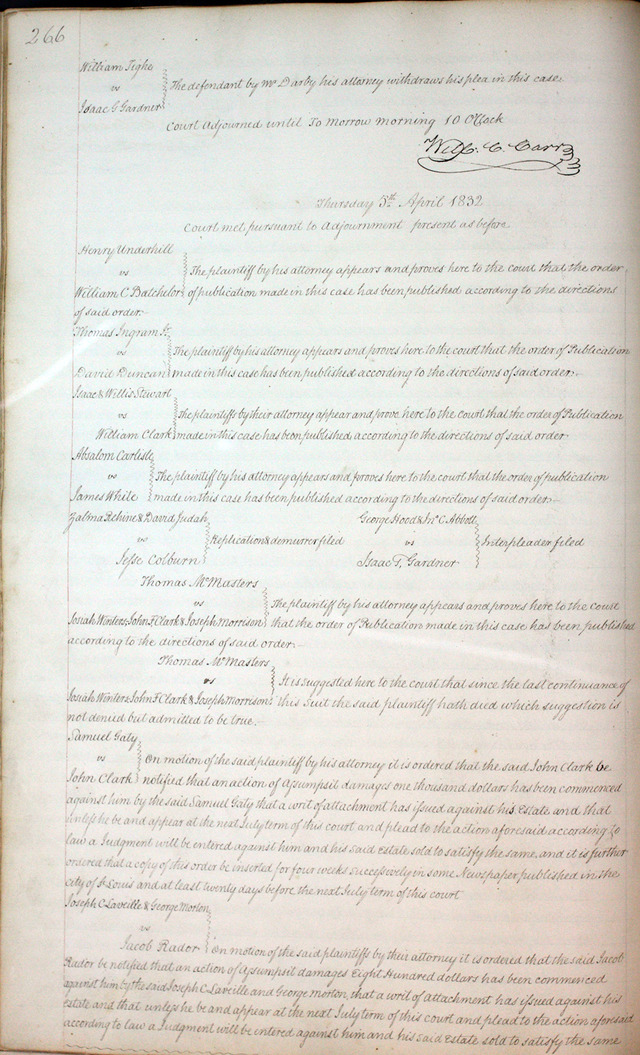 266
William Tighe
vs
Isaac G Gardner
The defendant by Mr Darby his attorney withdraws his plea in this case.
Court adjourned until To Morrow morning 10 OClock
Will. C. Carr
Thursday 5th April 1832
Court met pursuant to adjournment present as before
Henry Underhill
vs
William C Batchelor
The plaintiff by his attorney appears and proves here to the court that the order
of publication made in this case has been published according to the directions
of said order.
Thomas Ingram Jr.
vs
David Duncan
The plaintiff by his attorney appears and proves here to the court that the order of Publication
made in this case has been published according to the directions of said order.
Isaac & Willis Stewart
vs
William Clark
The plaintiffs by their attorney appear and prove here to the court that the order of Publication
made in this case has been published according to the directions of said order
Absalom Carlisle
vs
James White
The plaintiff by his attorney appears and proves here to the court that the order of publication
made in this case has been published according to the directions of said order.
Zalma Rehine & David Judah
vs
Jesse Colburn
Replication & demurrer filed
George Hood & Jno C. Abbott
vs
Isaac T. Gardner
Interpleader filed
Thomas McMasters
vs
Josiah Winters, John F Clark & Joseph Morrison
The plaintiff by his attorney appears and proves here to the Court
that the order of Publication made in this case has been published
according to the directions of said order.
Thomas McMasters
vs
Josiah Winters John F Clark & Joseph Morrison
It is suggested here to the court that since the last continuance of
this Suit the said plaintiff hath died which suggestion is
not denied but admitted to be true.
Samuel Gaty
vs
John Clark
On motion of the said plaintiff by his attorney it is ordered that the said John Clark be
notified that an action of Assumpsit damages one thousand dollars has been commenced
against him by the said Samuel Gaty that a writ of attachment has issued against his Estate and that
unless he be and appear at the next July term of this court and plead to the action aforesaid according to
law a Judgment will be entered against him and his said Estate sold to satisfy the same, and it is further
ordered that a copy of this order be inserted for four weeks successively in some Newspaper published in the
City of St Louis and at least twenty days before the next July term of this court
Joseph C Laveille & George Morton
vs
Jacob Rador
On motion of the said plaintiffs by their attorney it is ordered that the said Jacob
Rador be notified that an action of Assumpsit damages Eight Hundred dollars has been commenced
against him by the said Joseph C Laveille and George Morton, that a writ of attachment has issued against his
Estate and that unless he be and appear at the next July term of this court and plead to the action aforesaid
according to law a Judgment will be entered against him and his said Estate sold to satisfy the same